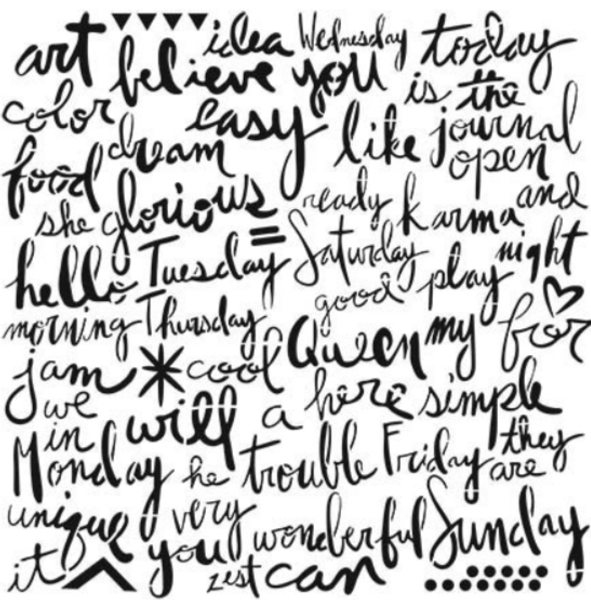 art idea Wednesday today
believe you is the
color easy like journal
food dream open
she glorious ready karma and
hello Tuesday = Saturday play night
morning Thursday good Queen my for
jam * cool
we will a here simple
in they
Monday he trouble Friday are
unique very wonderful Sunday
it you zest can